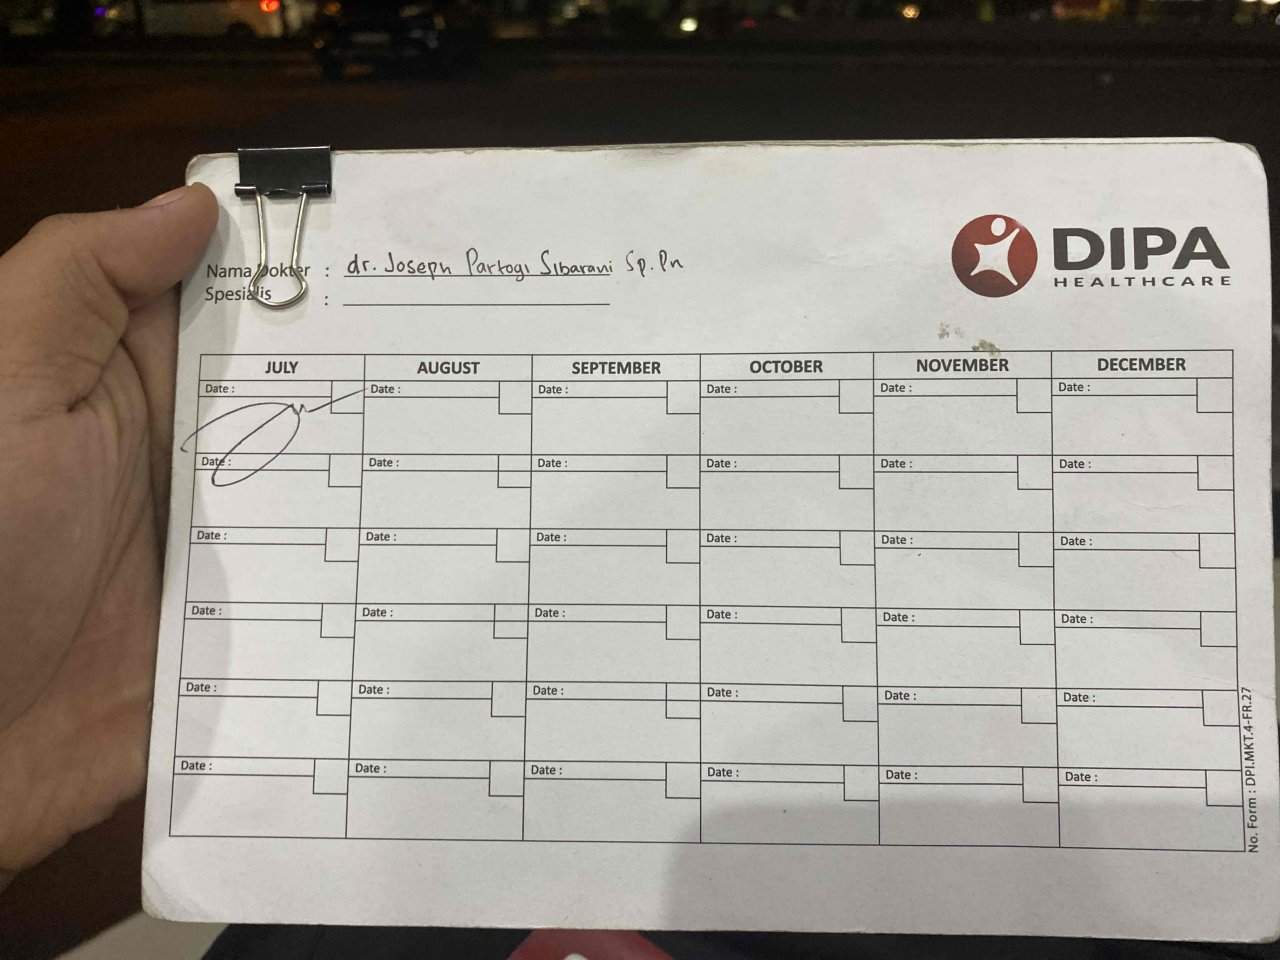 DIPA
HEALTHCARE
Nama Dokter : dr. Joseph Partogi Sibarani Sp.Pn
Spesialis :
JULY AUGUST SEPTEMBER OCTOBER NOVEMBER DECEMBER
Date : Date : Date : Date : Date : Date :
Date : Date : Date : Date : Date : Date :
Date : Date : Date : Date : Date : Date :
Date : Date : Date : Date : Date : Date :
Date : Date : Date : Date : Date : Date :
Date : Date : Date : Date : Date : Date :
No. Form : DPI.MKT.4-FR.27